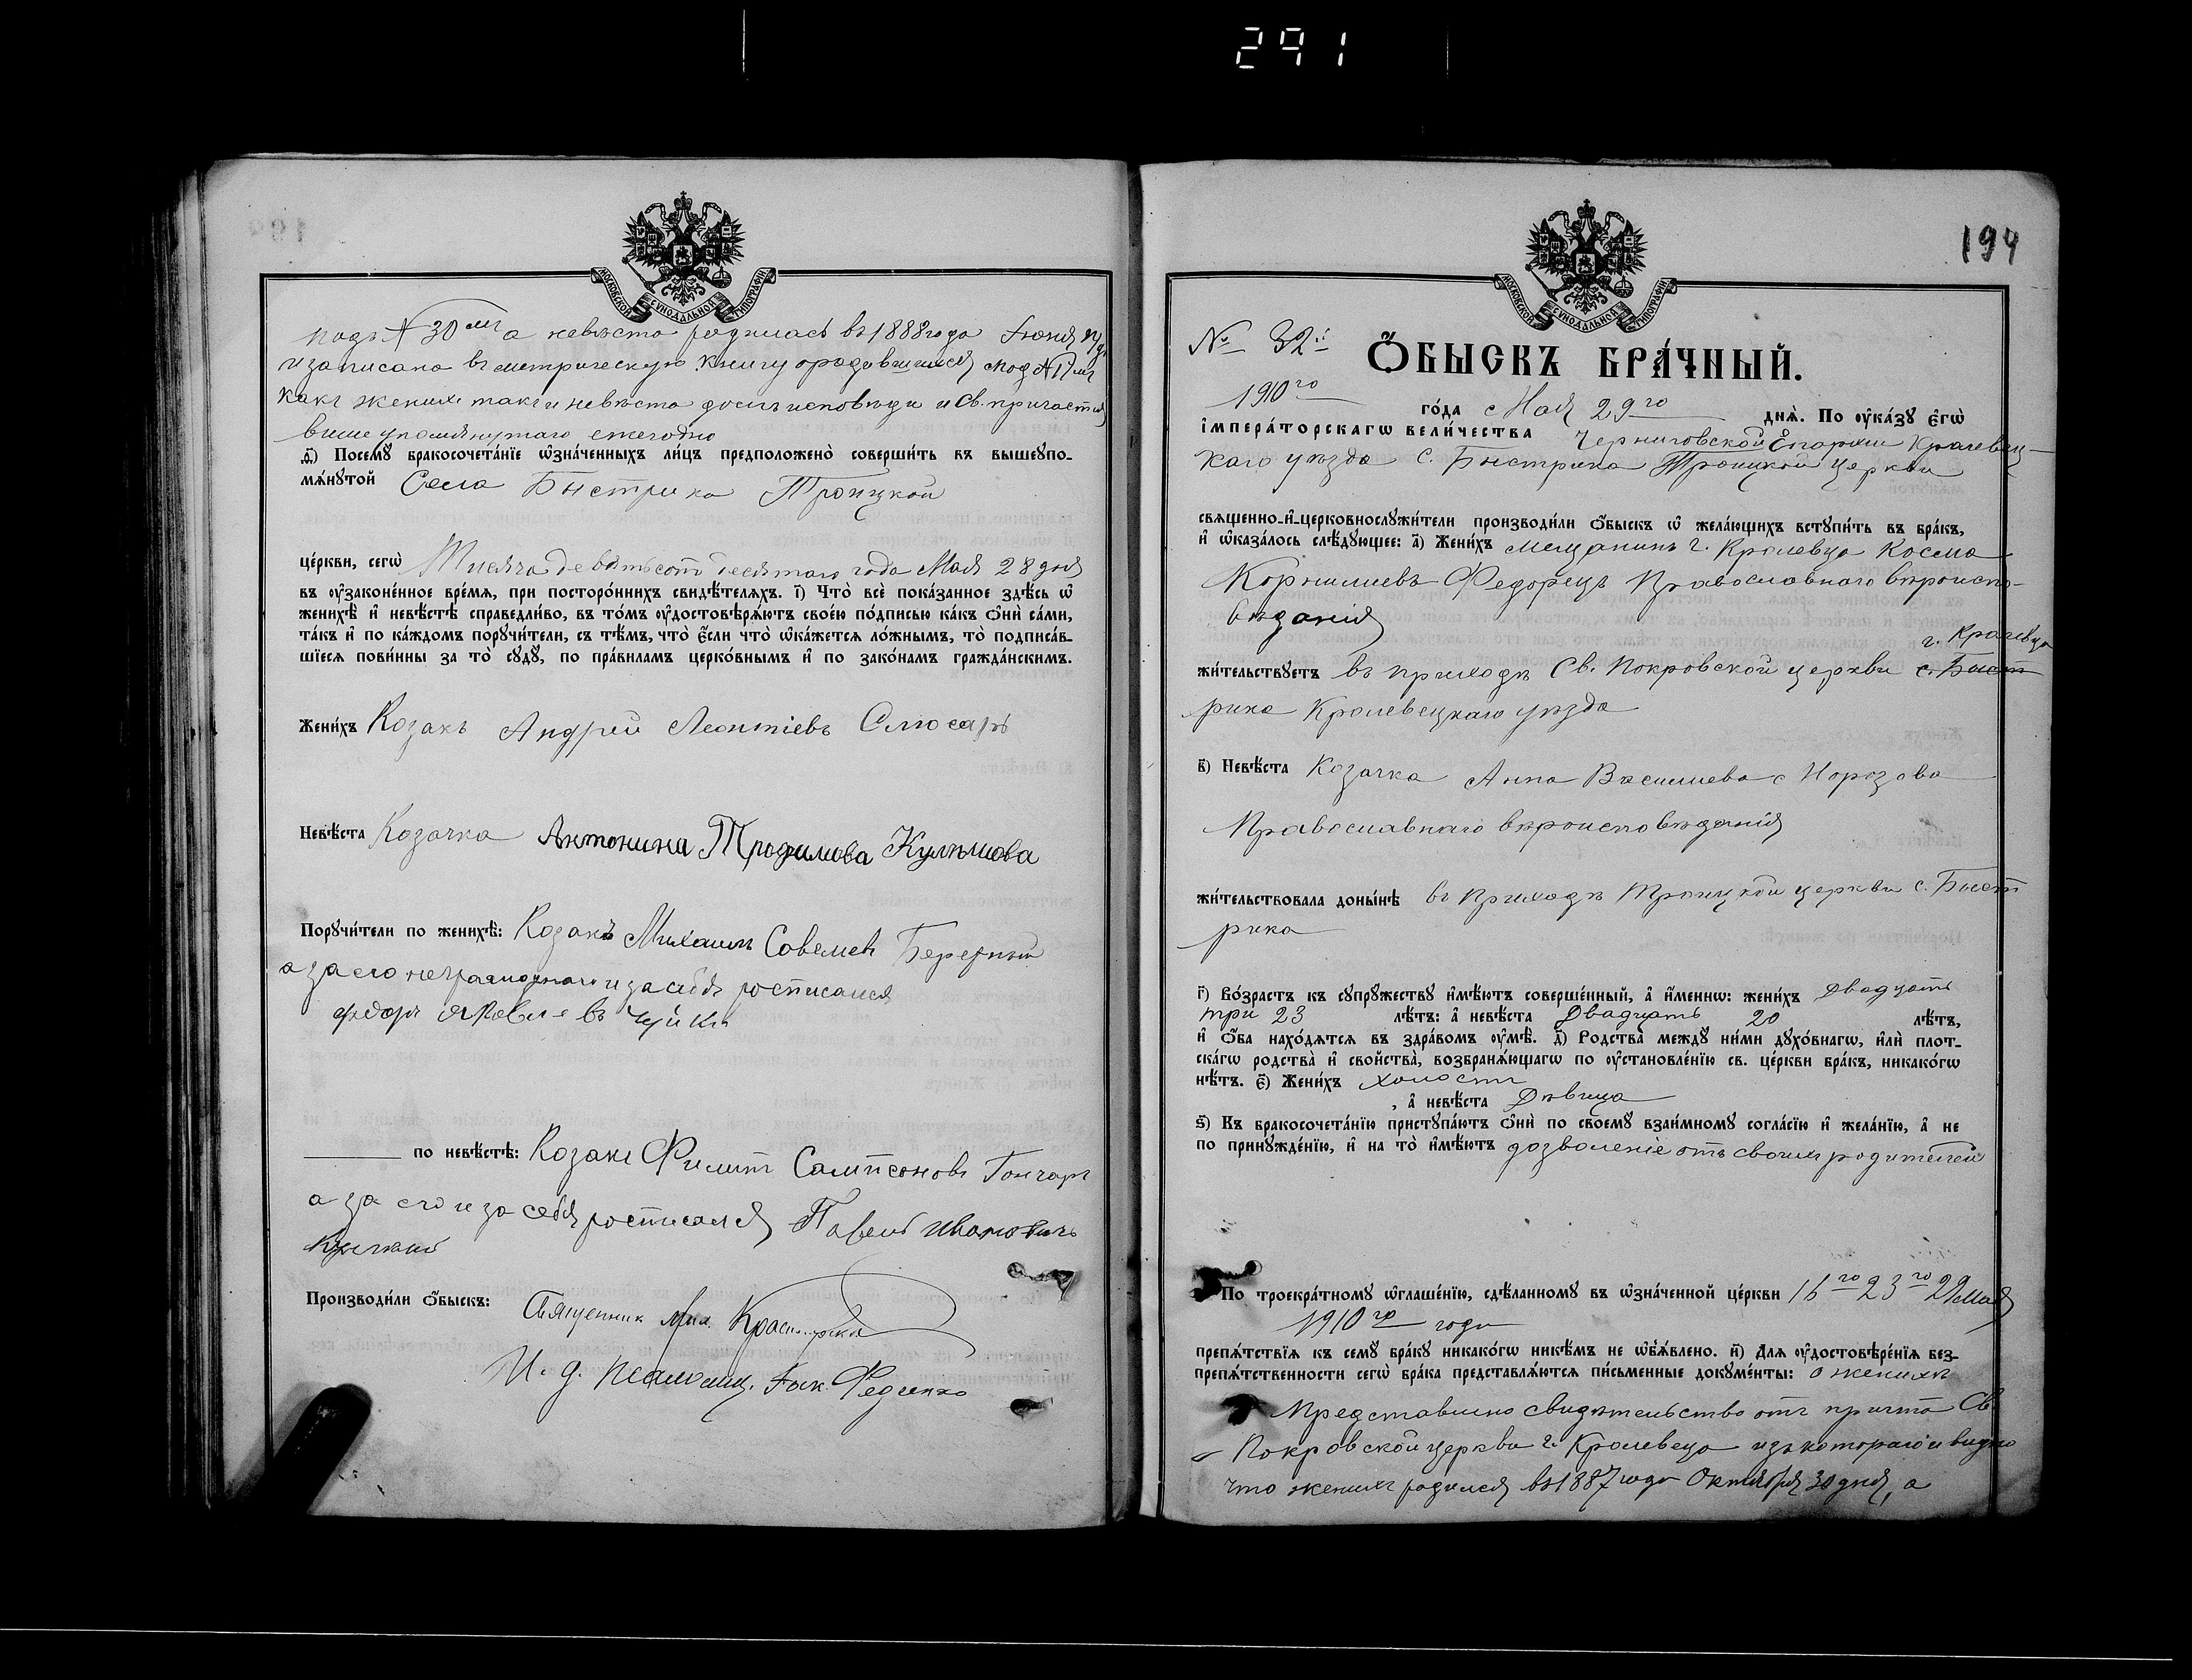 291
МОСКОВСКОЙ СУНОДАЛЬНОЙ ТИПОГРАФІИ
подъ № 30 мъ а невѣста родилась въ 1888 года Іюня
и записана въ метрическую книгу о родившихся подъ №
какъ женихъ такъ и невѣста были исповѣди и св. причастія
више упомянутаго ежегодно
д҃і) Посемꙋ̀ бракосочета́нїе ѡ҆зна́ченныхъ ли́цъ предположено̀ соверши́ть въ вышеупо-
мѧ́нꙋтой Села Быстрика Троицкой
це́ркви, сегѡ̀ Тисяча девятьсотъ десятаго года Мая 28 дня
въ ᲂу҆зако́не́нное вре́мѧ, при посторо́ннихъ свидѣ́телѧхъ. і҃) Что̀ всѐ пока́занное здѣ́сь ѡ҆
женихѣ̀ и҆ невѣ́стѣ справедли́во, въ то́мъ ᲂу҆достовѣрѧ́ютъ свое́ю по́дписью ка́къ ѻ҆нѝ са́ми,
та́къ и҆ по ка́ждомъ порꙋчи́тели, съ тѣ́мъ, что̀ є҆́сли что̀ ѡ҆ка́жетсѧ ло́жнымъ, то̀ подписа́в-
шїесѧ пови́нны за то̀ сꙋдꙋ̀, по пра́виламъ церко́внымъ и҆ по зако́намъ гражда́нскимъ.
Жени́хъ Козакъ Андрей Леонтіевъ Слюсарь
Невѣ́ста Козачка Антонина Трофимова Кулѣшова
Порꙋчи́тели по женихѣ̀: Козакъ Михаилъ Савелиев Бережный
а за его неграмотнаго и за себя росписался
Федоръ Яковлевъ Чуйко
по невѣ́стѣ: Козакъ Филипъ Сампсоновъ Гончаръ
а за его и за себя росписался Павелъ Ивановичъ
Производи́ли ѻ҆́быскъ: Священник Мих.
И. д. псаломщ. Іак. Феденко
194
МОСКОВСКОЙ СУНОДАЛЬНОЙ ТИПОГРАФІИ
№ 32й
Ѻ҆́БЫСКЪ БРА́ЧНЫЙ.
1910го го́да Мая 29го днѧ̀. По ᲂу҆ка́зꙋ Є҆гѡ̀
І҆мпера́торскагѡ вели́чества Черниговской Епархіи Кролевец-
каго уѣзда с. Быстрика Троицкой церкви
свѧще́нно-и҆-церковнослꙋжи́тели производи́ли ѻ҆́быскъ ѡ҆ жела́ющихъ встꙋпи́ть въ бра́къ,
и҆ ѡ҆каза́лось слѣ́дꙋющее: а҃) Жени́хъ мещанинъ г. Кролевца Косма
Корнилиевъ Федорецъ Православнаго вѣроиспо-
вѣданія
г. Кролевца
жи́тельствꙋетъ въ приходѣ Св. Покровской церкви с. Быст
рика Кролевецкаго уѣзда
в҃) Невѣ́ста Козачка Анна Василиева Морозова
Православнаго вѣроисповѣданія
жи́тельствовала доны́нѣ въ приходѣ Троицкой церкви с. Быст
рика
г҃) Во́зрастъ къ сꙋпрꙋ́жествꙋ и҆мѣ́ютъ соверше́нный, а҆ и҆́менно: жени́хъ Двадцать
три 23 лѣ́тъ: а҆ невѣ́ста Двадцать 20 лѣ́тъ,
и҆ ѻ҆́ба нахо́дѧтсѧ въ здра́вомъ ᲂу҆мѣ̀. д҃) Родства̀ междꙋ̀ ни́ми дꙋхо́внагѡ, и҆лѝ плот-
ска́гѡ родства̀ и҆ сво́йства̀, возбранѧ́ющагѡ по ᲂу҆становле́нїю св. це́ркви бра́къ, никако́гѡ
нѣ́тъ. є҃) Жени́хъ холостъ
, а҆ невѣ́ста Дѣвица
ѕ҃) Къ бракосочета́нїю пристꙋпа́ютъ ѻ҆нѝ по своемꙋ̀ взаи́мномꙋ согла́сїю и҆ жела́нїю, а҆ не
по принꙋжде́нїю, и҆ на то̀ и҆мѣ́ютъ дозволеніе отъ своихъ родителей
По троекра́тномꙋ ѡ҆глаше́нїю, сдѣ́ланномꙋ въ ѡ҆зна́ченной це́ркви 16го 23го 29 Мая
1910го года
препѧ́тствїѧ къ семꙋ̀ бра́кꙋ никако́гѡ никѣ́мъ не ѡ҆б̾ѧ́влено. и҃) Длѧ ᲂу҆достовѣре́нїѧ без-
препѧ́тственности сегѡ̀ бра́ка представлѧ́ютсѧ пи́сьменные докꙋме́нты: о женихѣ
Представлено свидѣтельство отъ причта Св.
Покровской церкви г. Кролевца изъ котораго и видно
что женихъ родился въ 1887 году Октября 30 дня, а